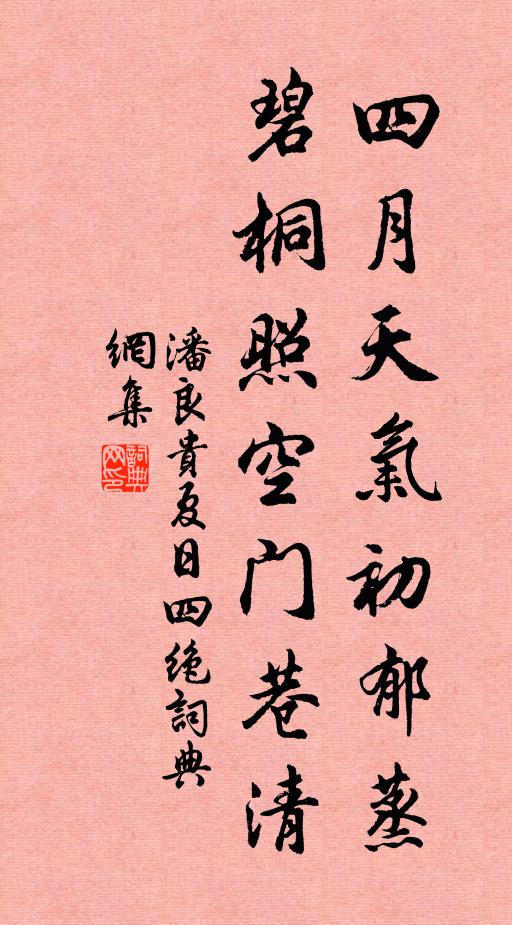 四月天氣初郁蒸
碧桐照空门巷清
潘良貴夏日四绝詞典
網集
詞典网印